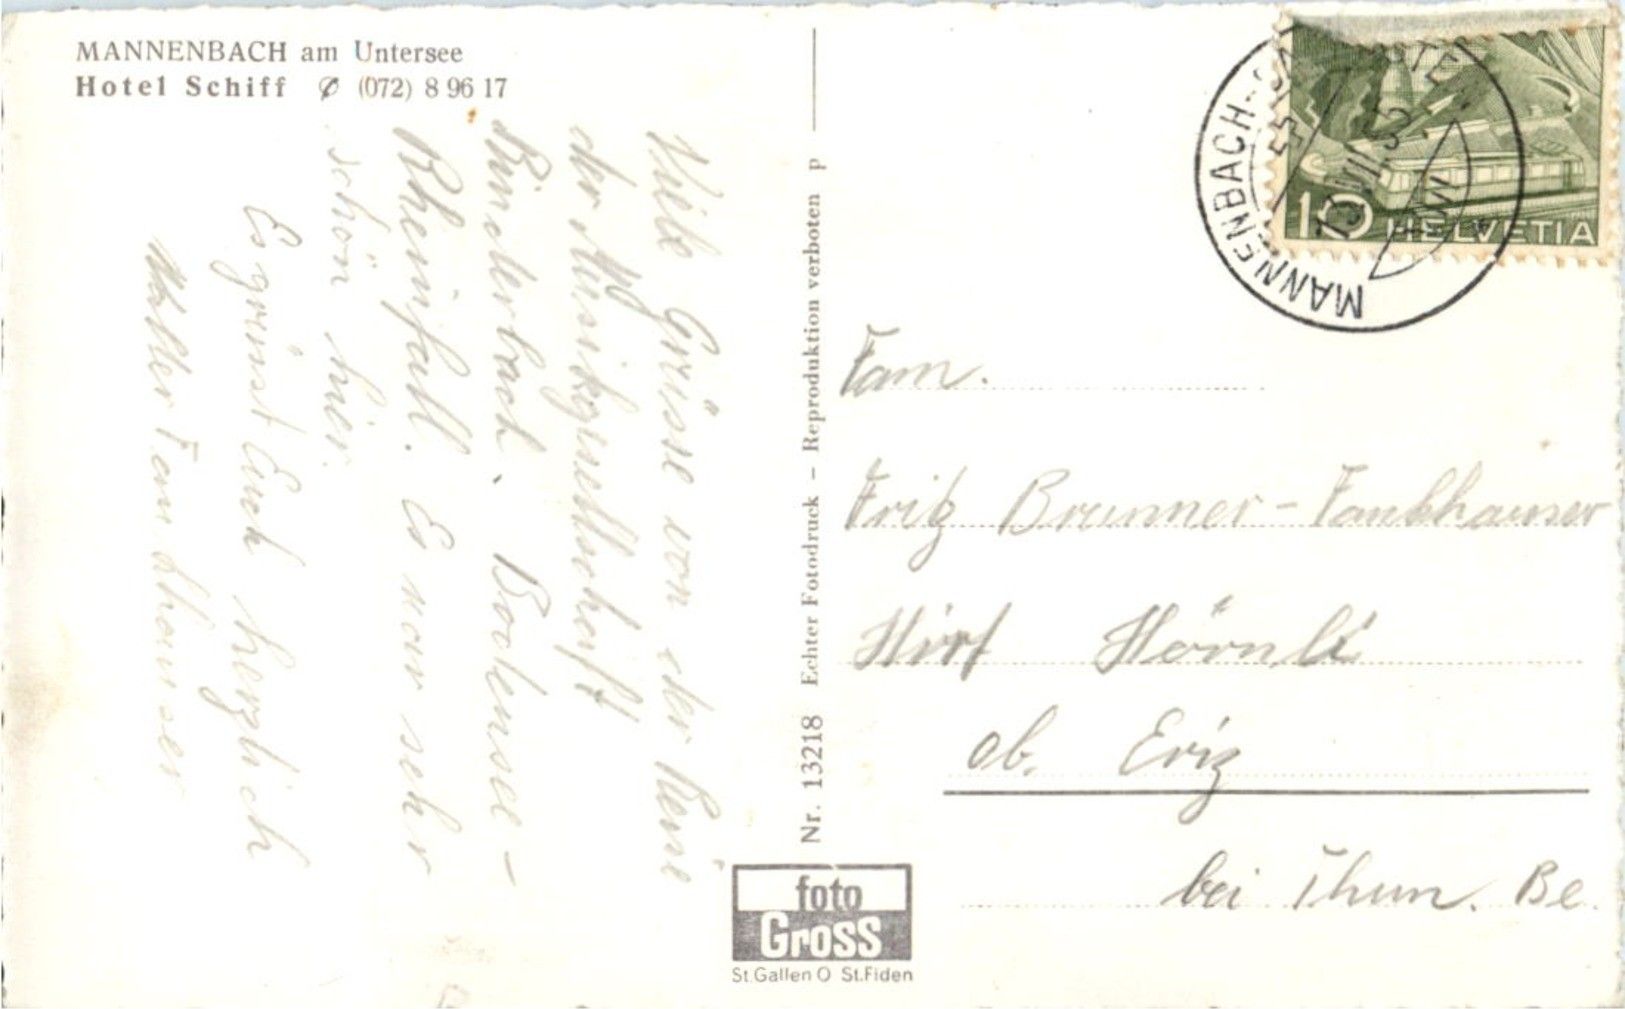 MANNENBACH am Untersee
Hotel Schiff ✆ (072) 8 96 17
Viele Grüsse von der Reise
der Musikgesellschaft
Bodensee -
Rheinfall. Es war sehr
schön hier.
Es grüsst Euch herzlich
Fankhauser
Nr. 13218 Echter Fotodruck – Reproduktion verboten p
foto
Gross
St.Gallen O St.Fiden
MANNENBACH
HELVETIA
10
Fam.
Fritz Brunner - Fankhauser
Hörnli
ob. Eriz
bei Thun. Be.